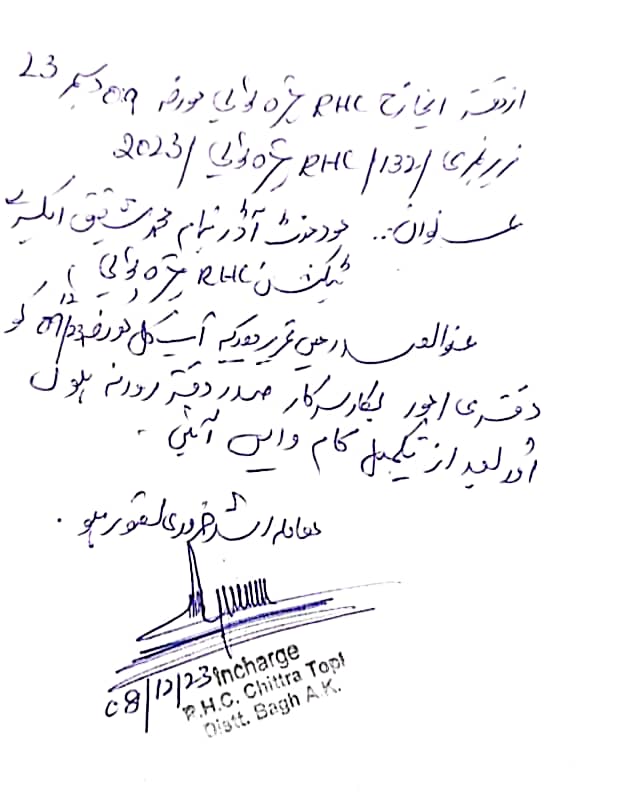 از دفتر انچارج RHC چترہ ٹوپی مورخہ 09 دسمبر 23
زیر نمبری /132/ RHC چترہ ٹوپی /2023
عنوان:۔ موومنٹ آڈر بنام محمد شفیق ایکسرے
ٹیکنیشن RHC چترہ ٹوپی
عنوان الصدر میں تحریر ہیکہ آپ کل مورخہ 09/12/23 کو
دفتری امور بکار سرکار صدر دفتر روانہ ہوں
اور بعد از تکمیل کام واپس آئیں ۔
معاملہ اشد ضروری تصور ہو ۔
08/12/23
Incharge
R.H.C. Chittra Topi
Distt. Bagh A.K.